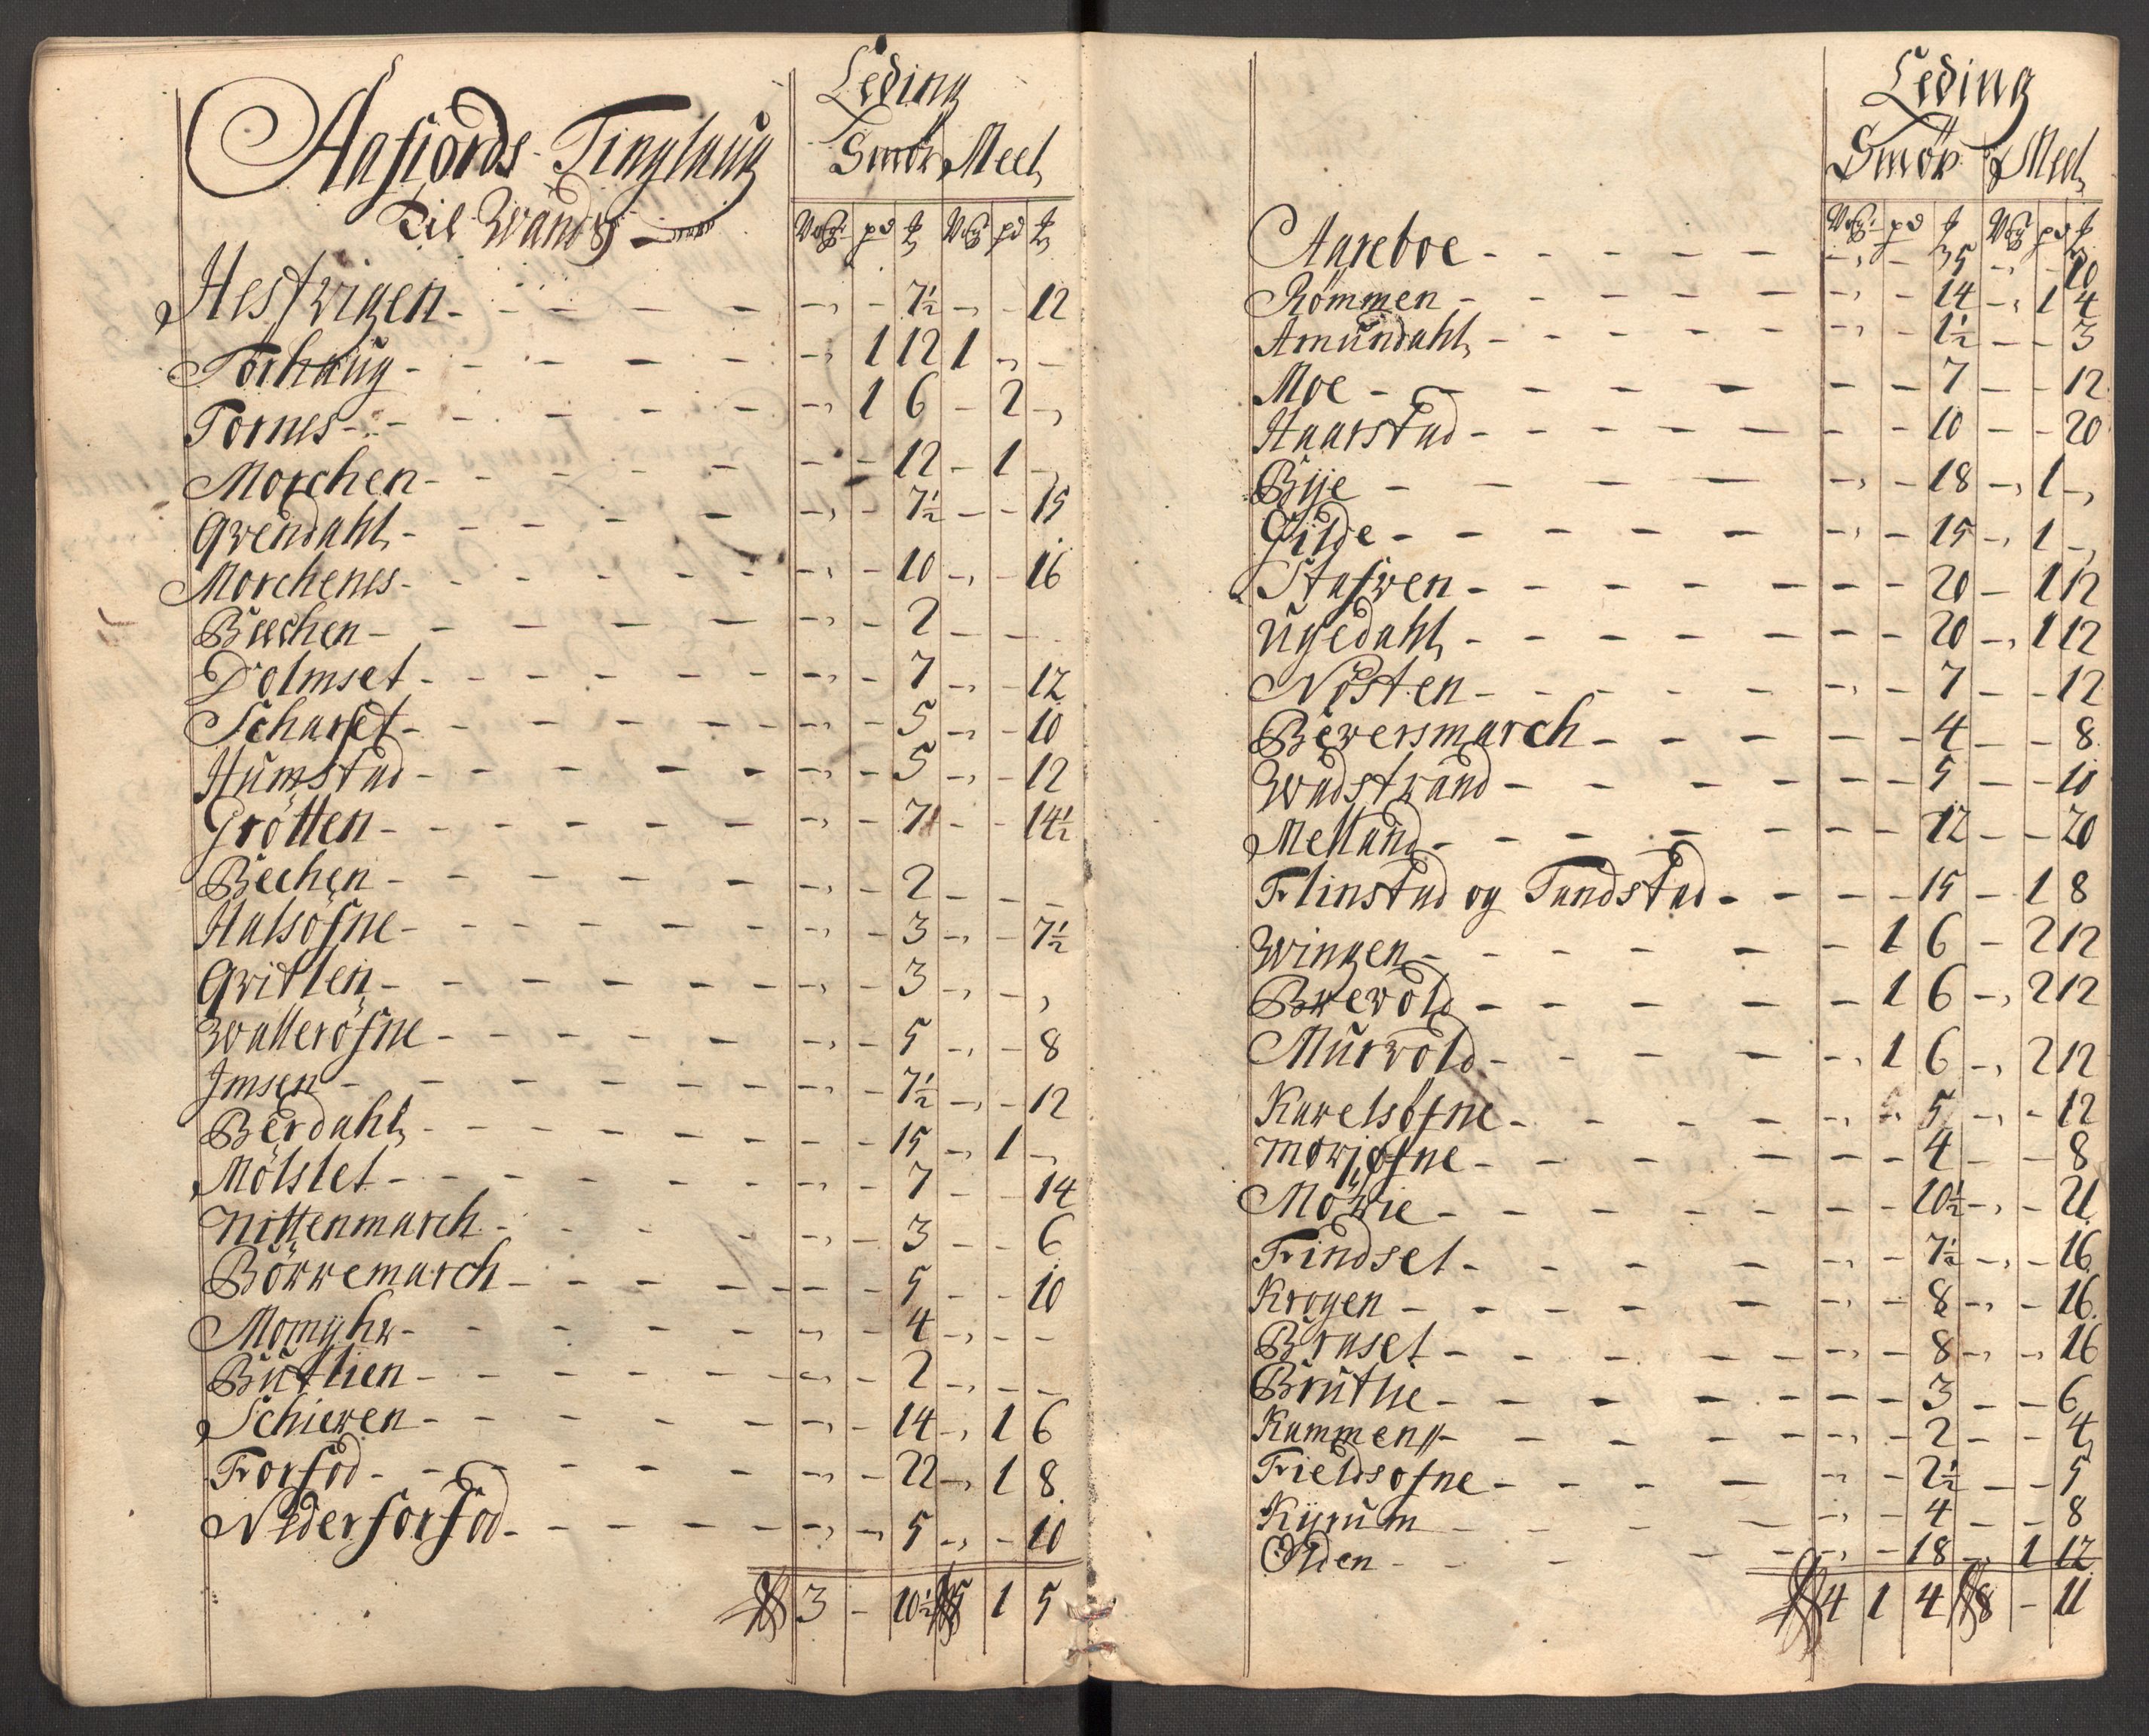 Leding
Aafiords Tinglaug Smör Meel
Til Wands
Wog pd ℔ Wog pd ℔
Hestvigen - - 7½ - - 12
Torhaug - 1 12 1 - -
Tornes - 1 6 - 2 -
Morchen - - 12 - 1 -
Qvendahl - - 7½ - - 15
Morchenes - - 10 - - 16
Buchen - - 2 - - -
Dolmset - - 7 - - 12
Scharset - - 5 - - 10
Humstad - - 5 - - 12
Grötten - - 7 - - 14½
Bechen - - 2 - - -
Halsöfne - - 3 - - 7½
Qvitlen - - 3 - - -
Walleröfne - - 5 - - 8
Imsen - - 7½ - - 12
Berdahl - - 15 - 1 -
Mölslet - - 7 - - 14
Nittenmarch - - 3 - - 6
Börremarch - - 5 - - 10
Momyhr - - 4 - - -
Butlien - - 2 - - -
Schieren - - 14 - 1 6
Forfod - - 22 - 1 8
Nederforfod - - 5 - - 10
3 - 10½ 5 1 5
Leding
Smör Meel
Wog pd ℔ Wog pd ℔
Aareboe - - 5 - - 10
Römmen - - 14 - 1 4
Amundahl - - 1½ - - 3
Moe - - 7 - - 12
Haarstad - - 10 - - 20
Bye - - 18 - 1 -
Gilde - - 15 - 1 -
Stafren - - 20 - 1 12
Ugedahl - - 20 - 1 12
Nösten - - 7 - - 12
Beversmarch - - 4 - - 8
Wadstrand - - 5 - - 10
Melland - - 12 - - 20
Flinstad og Tandstad - - 15 - 1 8
Wingen - 1 6 - 2 12
Brevold - 1 6 - 2 12
Murvold - 1 6 - 2 12
Karelsöfne - - 5 - - 12
Moriöfne - - 4 - - 8
Mörie - - 10½ - - 21
Frindset - - 7½ - - 16
Krogen - - 8 - - 16
Braset - - 8 - - 16
Bruthe - - 3 - - 6
Kammen - - 2 - - 4
Fieldsofne - - 2½ - - 5
Kyrum - - 4 - - 8
Olden - - 18 - 1 12
4 1 4 8 - 11